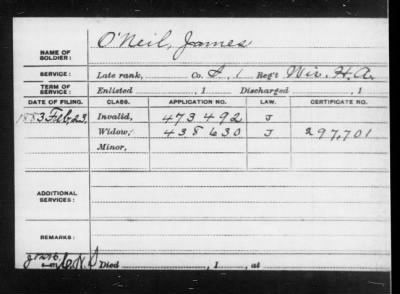 NAME OF SOLDIER: O'Neil, James
SERVICE: Late rank, Co. A, 1 Reg't Wis. H.A.
TERM OF SERVICE: Enlisted , 1 Discharged , 1
DATE OF FILING. CLASS. APPLICATION NO. LAW. CERTIFICATE NO.
1883 Feb. 23, Invalid, 473492 J
Widow, 438630 J 297,701
Minor,
ADDITIONAL SERVICES:
REMARKS:
Died , 1 , at